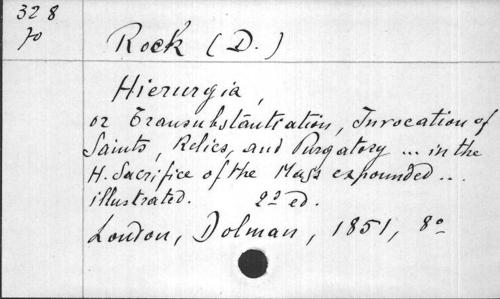 32 8
70
Rock (D.)
Hierurgia,
or Transubstantiation, Invocation of
Saints, Relics, and Purgatory ... in the
H. Sacrifice of the Mass expounded ...
illustrated. 2d ed.
London, Dolman, 1851, 8o